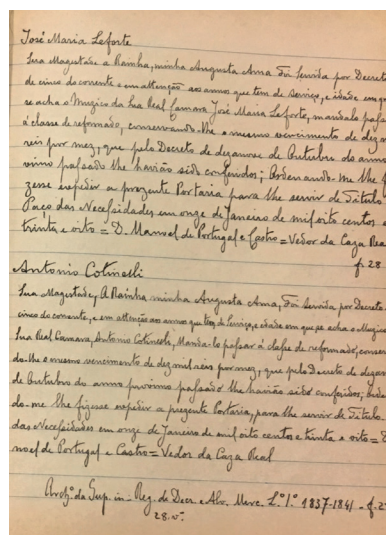 José Maria Leforte
Sua Magestade a Rainha, minha Augusta Ama Foi Servida por Decreto
de cinco do corrente e em attenção aos annos que tem de Serviço, e idade em que
se acha o Muzico da Sua Real Camara José Maria Leforte, mandalo passar
á classe de reformado, conservando-lhe o mesmo vencimento de dez mil
reis por mez, que pelo Decreto de dezanove de Outubro do anno
ximo passado lhe havião sido conferidos; Ordenando-me lhe
zesse expedir a prezente Portaria para lhe servir de Titulo
Paço das Necessidades em onze de Janeiro de mil oito centos e
trinta e oito = D. Manoel de Portugal e Castro = Vedor da Caza Real
f. 28
Antonio Cotinelli
Sua Magestade, A Rainha minha Augusta Ama, Foi Servida por Decreto
cinco do corrente, e em attenção aos annos que tem de Serviço, e idade em que se acha o Muzico
Sua Real Camara, Antonio Cotinelli, Manda-lo passar á classe de reformado, conser
do-lhe o mesmo vencimento de dez mil réis por mez, que pelo Decreto de dezano
de Outubro do anno próximo passado lhe havião sido conferidos; Orde
do-me lhe fizesse expedir a prezente Portaria, para lhe servir de Titulo.
das Necessidades em onze de Janeiro de mil oito centos e trinta e oito =
noel de Portugal e Castro = Vedor da Caza Real
Arch.º da Sup. in: Reg. de Decr. e Alv. Merc. L.º 1.º 1837-1841 - f. 2
28. v.